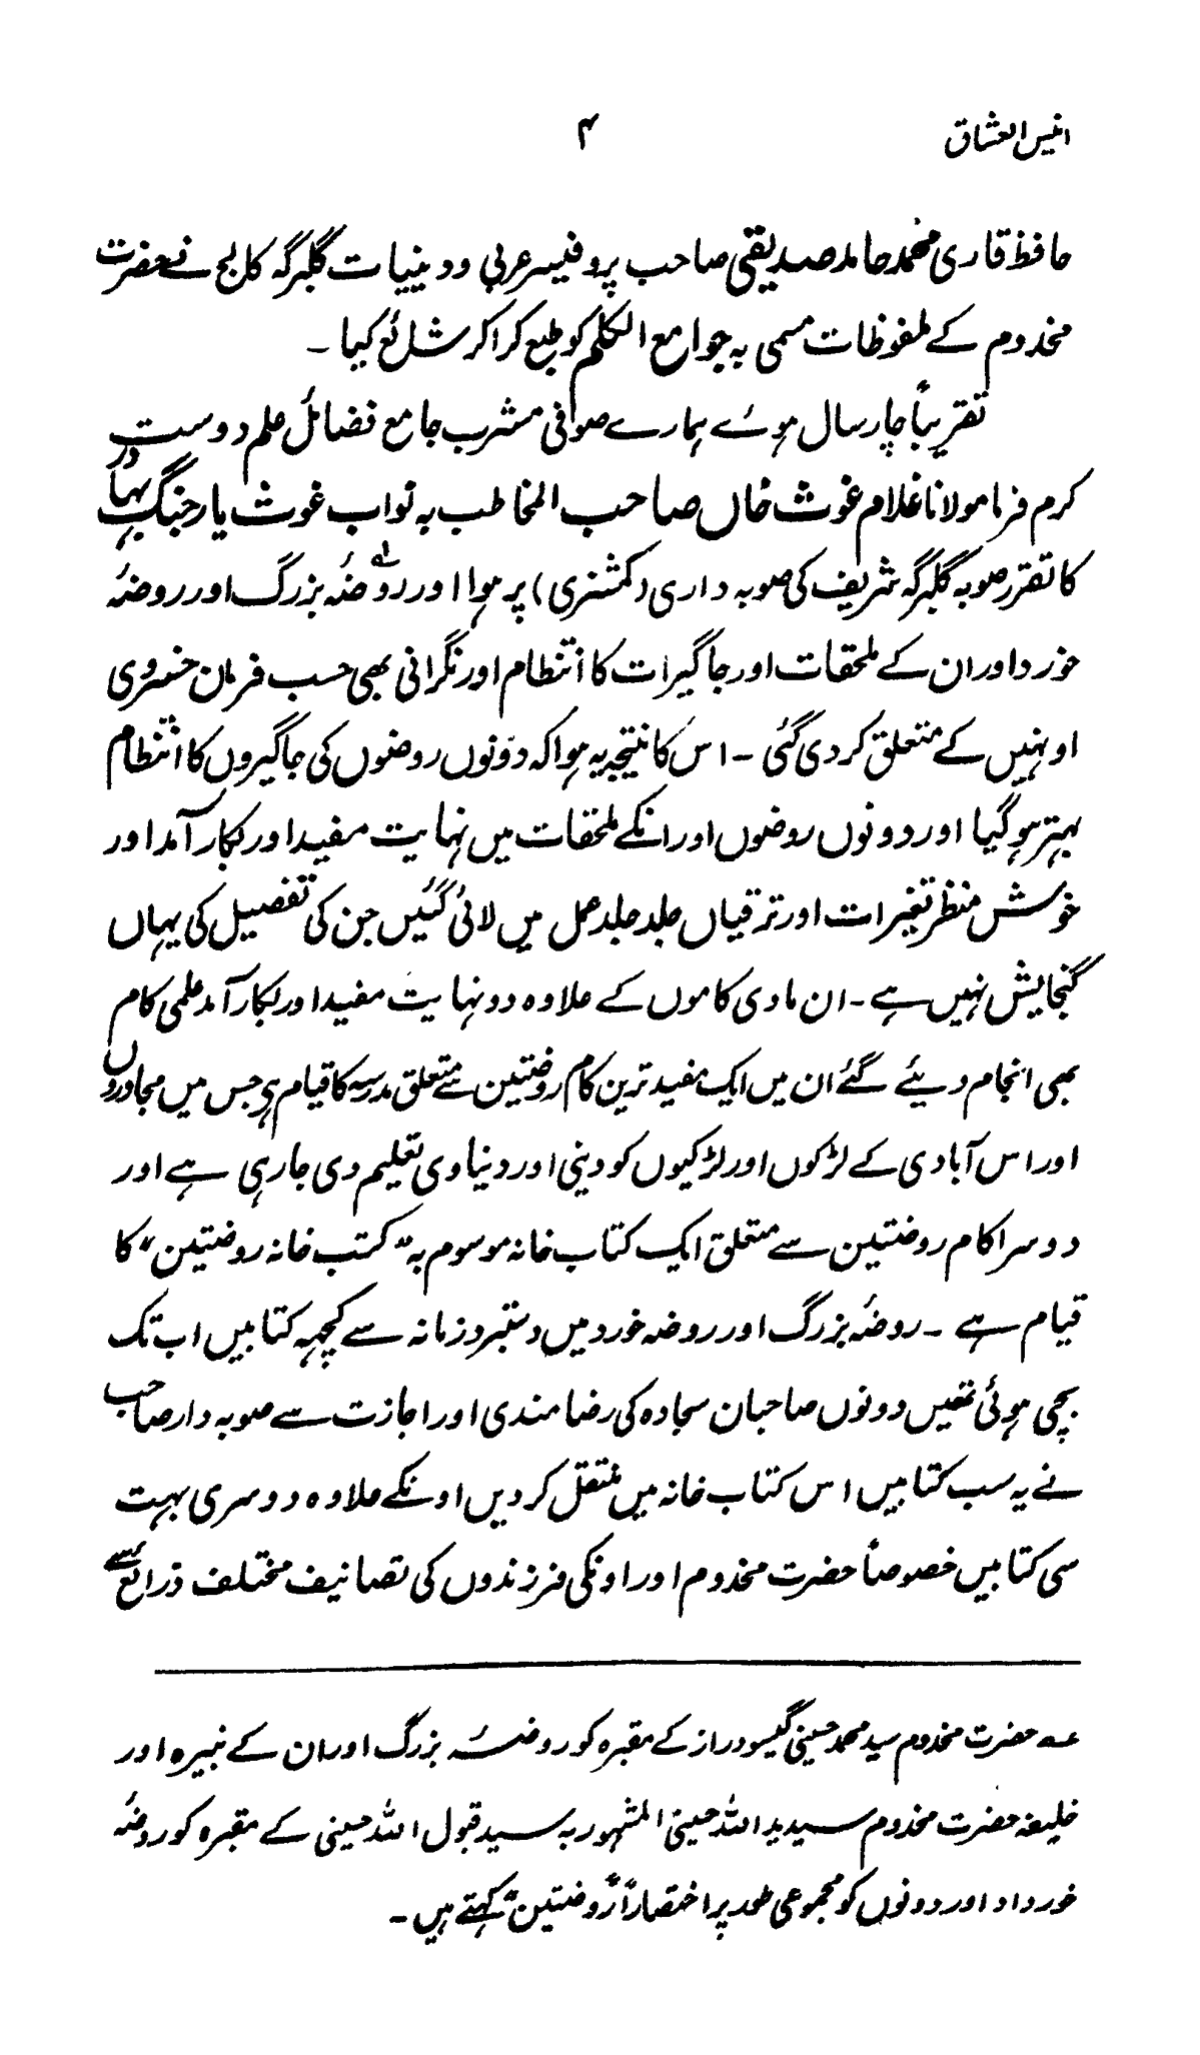 انیس العشاق
۴
حافظ قاری محمد حامد صدیقی صاحب پروفیسر عربی و دینیات گلبرگہ کالج نے حضرت
مخدوم کے ملفوظات مسمی بہ جوامع الکلم کو طبع کراکر شائع کیا ۔
تقریباً چار سال ہوئے ہمارے صوفی مشرب جامع فضائل علم دوست
کرم فرما مولانا غلام غوث خاں صاحب المخاطب بہ نواب غوث یار جنگ بہادر
کا تقرر صوبہ گلبرگہ شریف کی صوبہ داری (کمشنری) پر ہوا اور روضۂ بزرگ اور روضۂ
خورد اور ان کے ملحقات اور جاگیرات کا انتظام اور نگرانی بھی حسب فرمان خسروی
اونہیں کے متعلق کر دی گئی ۔ اس کا نتیجہ یہ ہوا کہ دونوں روضوں کی جاگیروں کا انتظام
بہتر ہو گیا اور دونوں روضوں اور انکے ملحقات میں نہایت مفید اور بکار آمد اور
خوش منظر تغیرات اور ترقیاں جلد جلد عمل میں لائی گئیں جن کی تفصیل کی یہاں
گنجایش نہیں ہے ۔ ان مادی کاموں کے علاوہ دو نہایت مفید اور بکار آمد علمی کام
بھی انجام دیئے گئے ان میں ایک مفید ترین کام روضتین سے متعلق مدرسہ کا قیام ہی جس میں مجاوروں
اور اس آبادی کے لڑکوں اور لڑکیوں کو دینی اور دنیاوی تعلیم دی جا رہی ہے اور
دوسرا کام روضتین سے متعلق ایک کتاب خانہ موسوم بہ ”کتب خانہ روضتین“ کا
قیام ہے ۔ روضۂ بزرگ اور روضہ خورد میں دستبرد زمانہ سے کچہہ کتابیں اب تک
بچی ہوئی تھیں دونوں صاحبان سجادہ کی رضامندی اور اجازت سے صوبہ دار صاحب
نے یہ سب کتابیں اس کتاب خانہ میں منتقل کر دیں اونکے علاوہ دوسری بہت
سی کتابیں خصوصاً حضرت مخدوم اور اونکی فرزندوں کی تصانیف مختلف ذرائع سے
عہ حضرت مخدوم سید محمد حسینی گیسودراز کے مقبرہ کو روضۂ بزرگ اور ان کے نبیرہ اور
خلیفہ حضرت مخدوم سید ید اللہ حسینی المشہور بہ سید قبول اللہ حسینی کے مقبرہ کو روضۂ
خورد اور دونوں کو مجموعی طور پر اختصاراً ”روضتین“ کہتے ہیں ۔